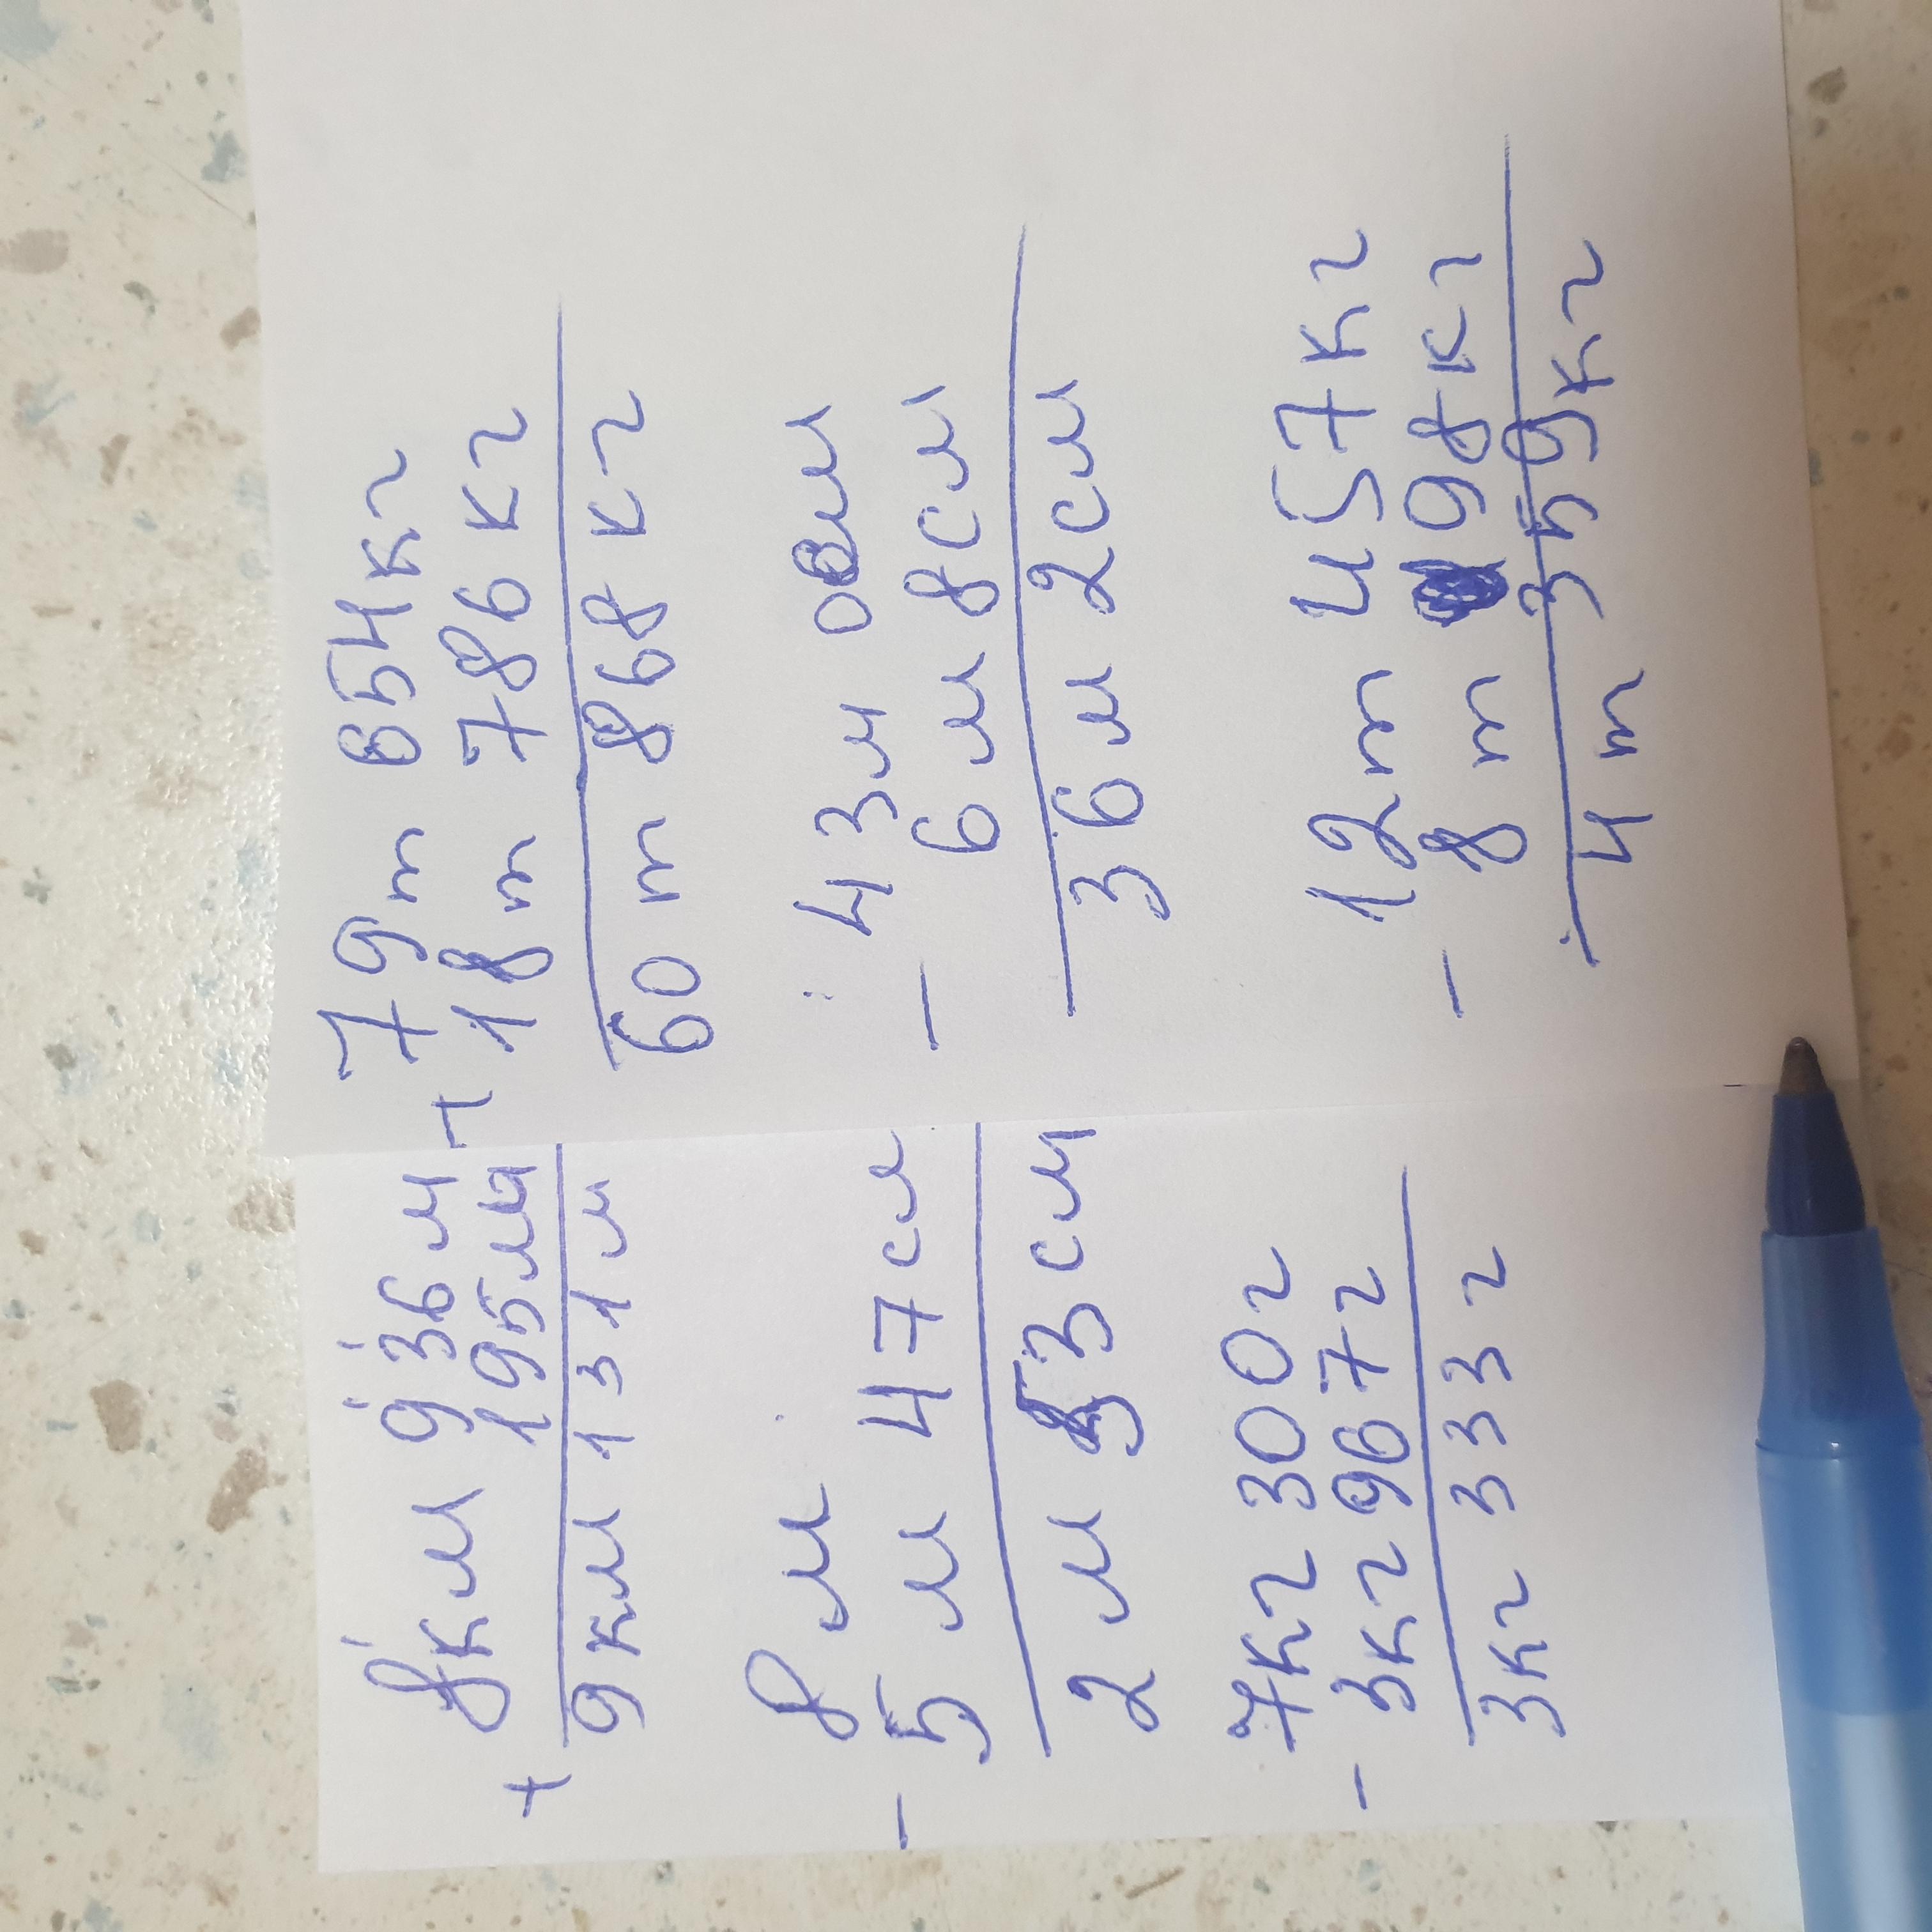 8км 936м
+ 195м
9км 131м
8м
- 5м 47см
2м 53см
7кг 300г
- 3кг 967г
3кг 333г
79т 654кг
+ 18т 786кг
60т 868кг
43м 0см
- 6м 8см
36м 2см
12т 457кг
- 8т 98кг
4т 359кг